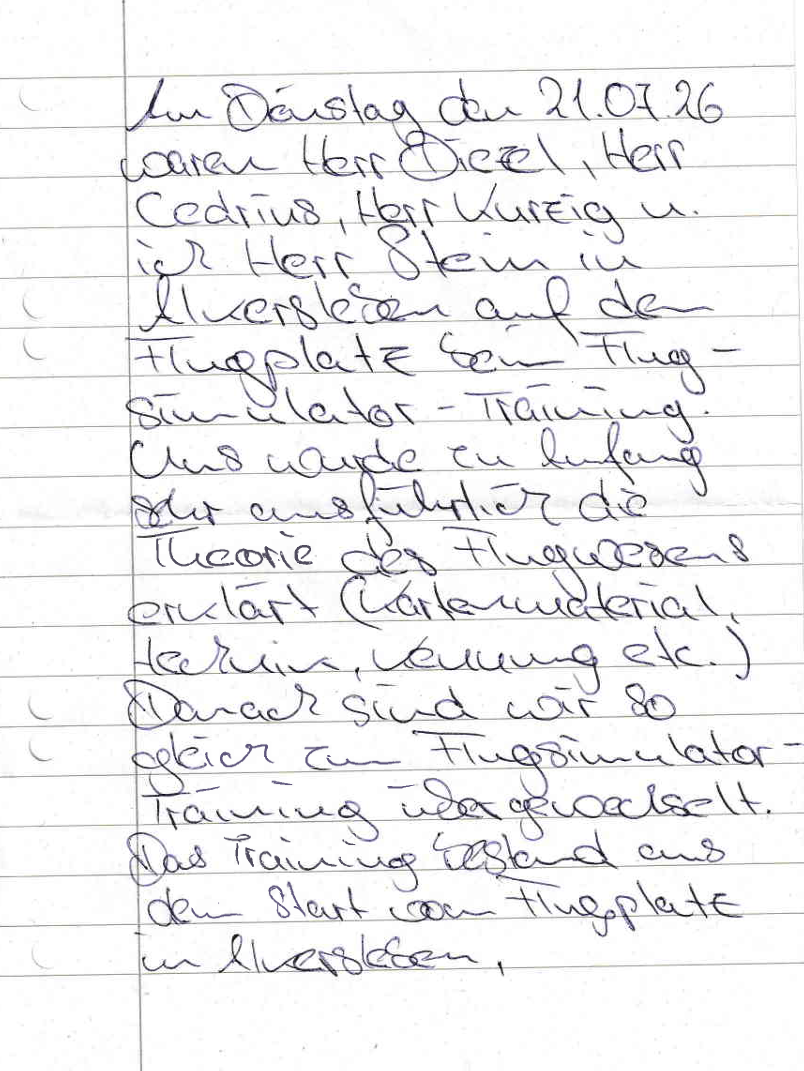 Am Dienstag den 21.07.26
waren Herr Diezel, Herr
Cedrius, Herr Kurzig u.
ich Herr Stein in
Alversleben auf dem
Flugplatz beim Flug-
simulator-Training.
Uns wurde zu Anfang
sehr ausführlich die
Theorie des Flugwesens
erklärt (Kartenmaterial,
Technik, etc.)
Danach sind wir so
gleich zum Flugsimulator-
Training übergewechselt.
Das Training bestand aus
dem Start vom Flugplatz
in Alversleben,